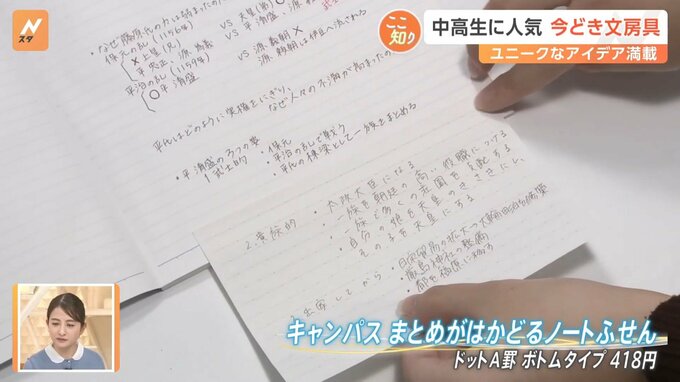 Nスタ
ここ知り
中高生に人気 今どき文房具
ユニークなアイデア満載
なぜ藤原氏の力は弱まったの
保元の乱(1156年)
平治の乱(1159年)
平清盛 VS 源義朝
源頼朝は伊豆へ流される
平氏はどのように実権をにぎり、なぜ人々の不満が高まったの
平清盛の3つの顔
1 武士的
・保元
・平治の乱で戦う
・平氏の棟梁として一族をまとめる
2.貴族的
・太政大臣になる
・一族も朝廷の高い役職につける
・一族で多くの荘園を支配する
・自分の娘を天皇のきさきにし、
その子を天皇にする
・日宋貿易の拡大→大輪田泊
・厳島神社の整備
キャンパス まとめがはかどるノートふせん
ドットA罫 ボトムタイプ 418円